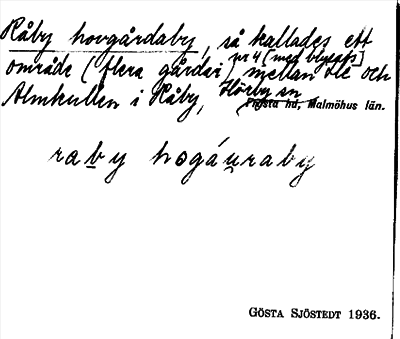 Råby hovgårdaby, så kallades ett
område (flera gårdar nr 4 [med blyerts]) mellan ole och
Almkullen i Råby, Hörby sn
Frosta hd, Malmöhus län.
raby hogáu̯raby
GÖSTA SJÖSTEDT 1936.